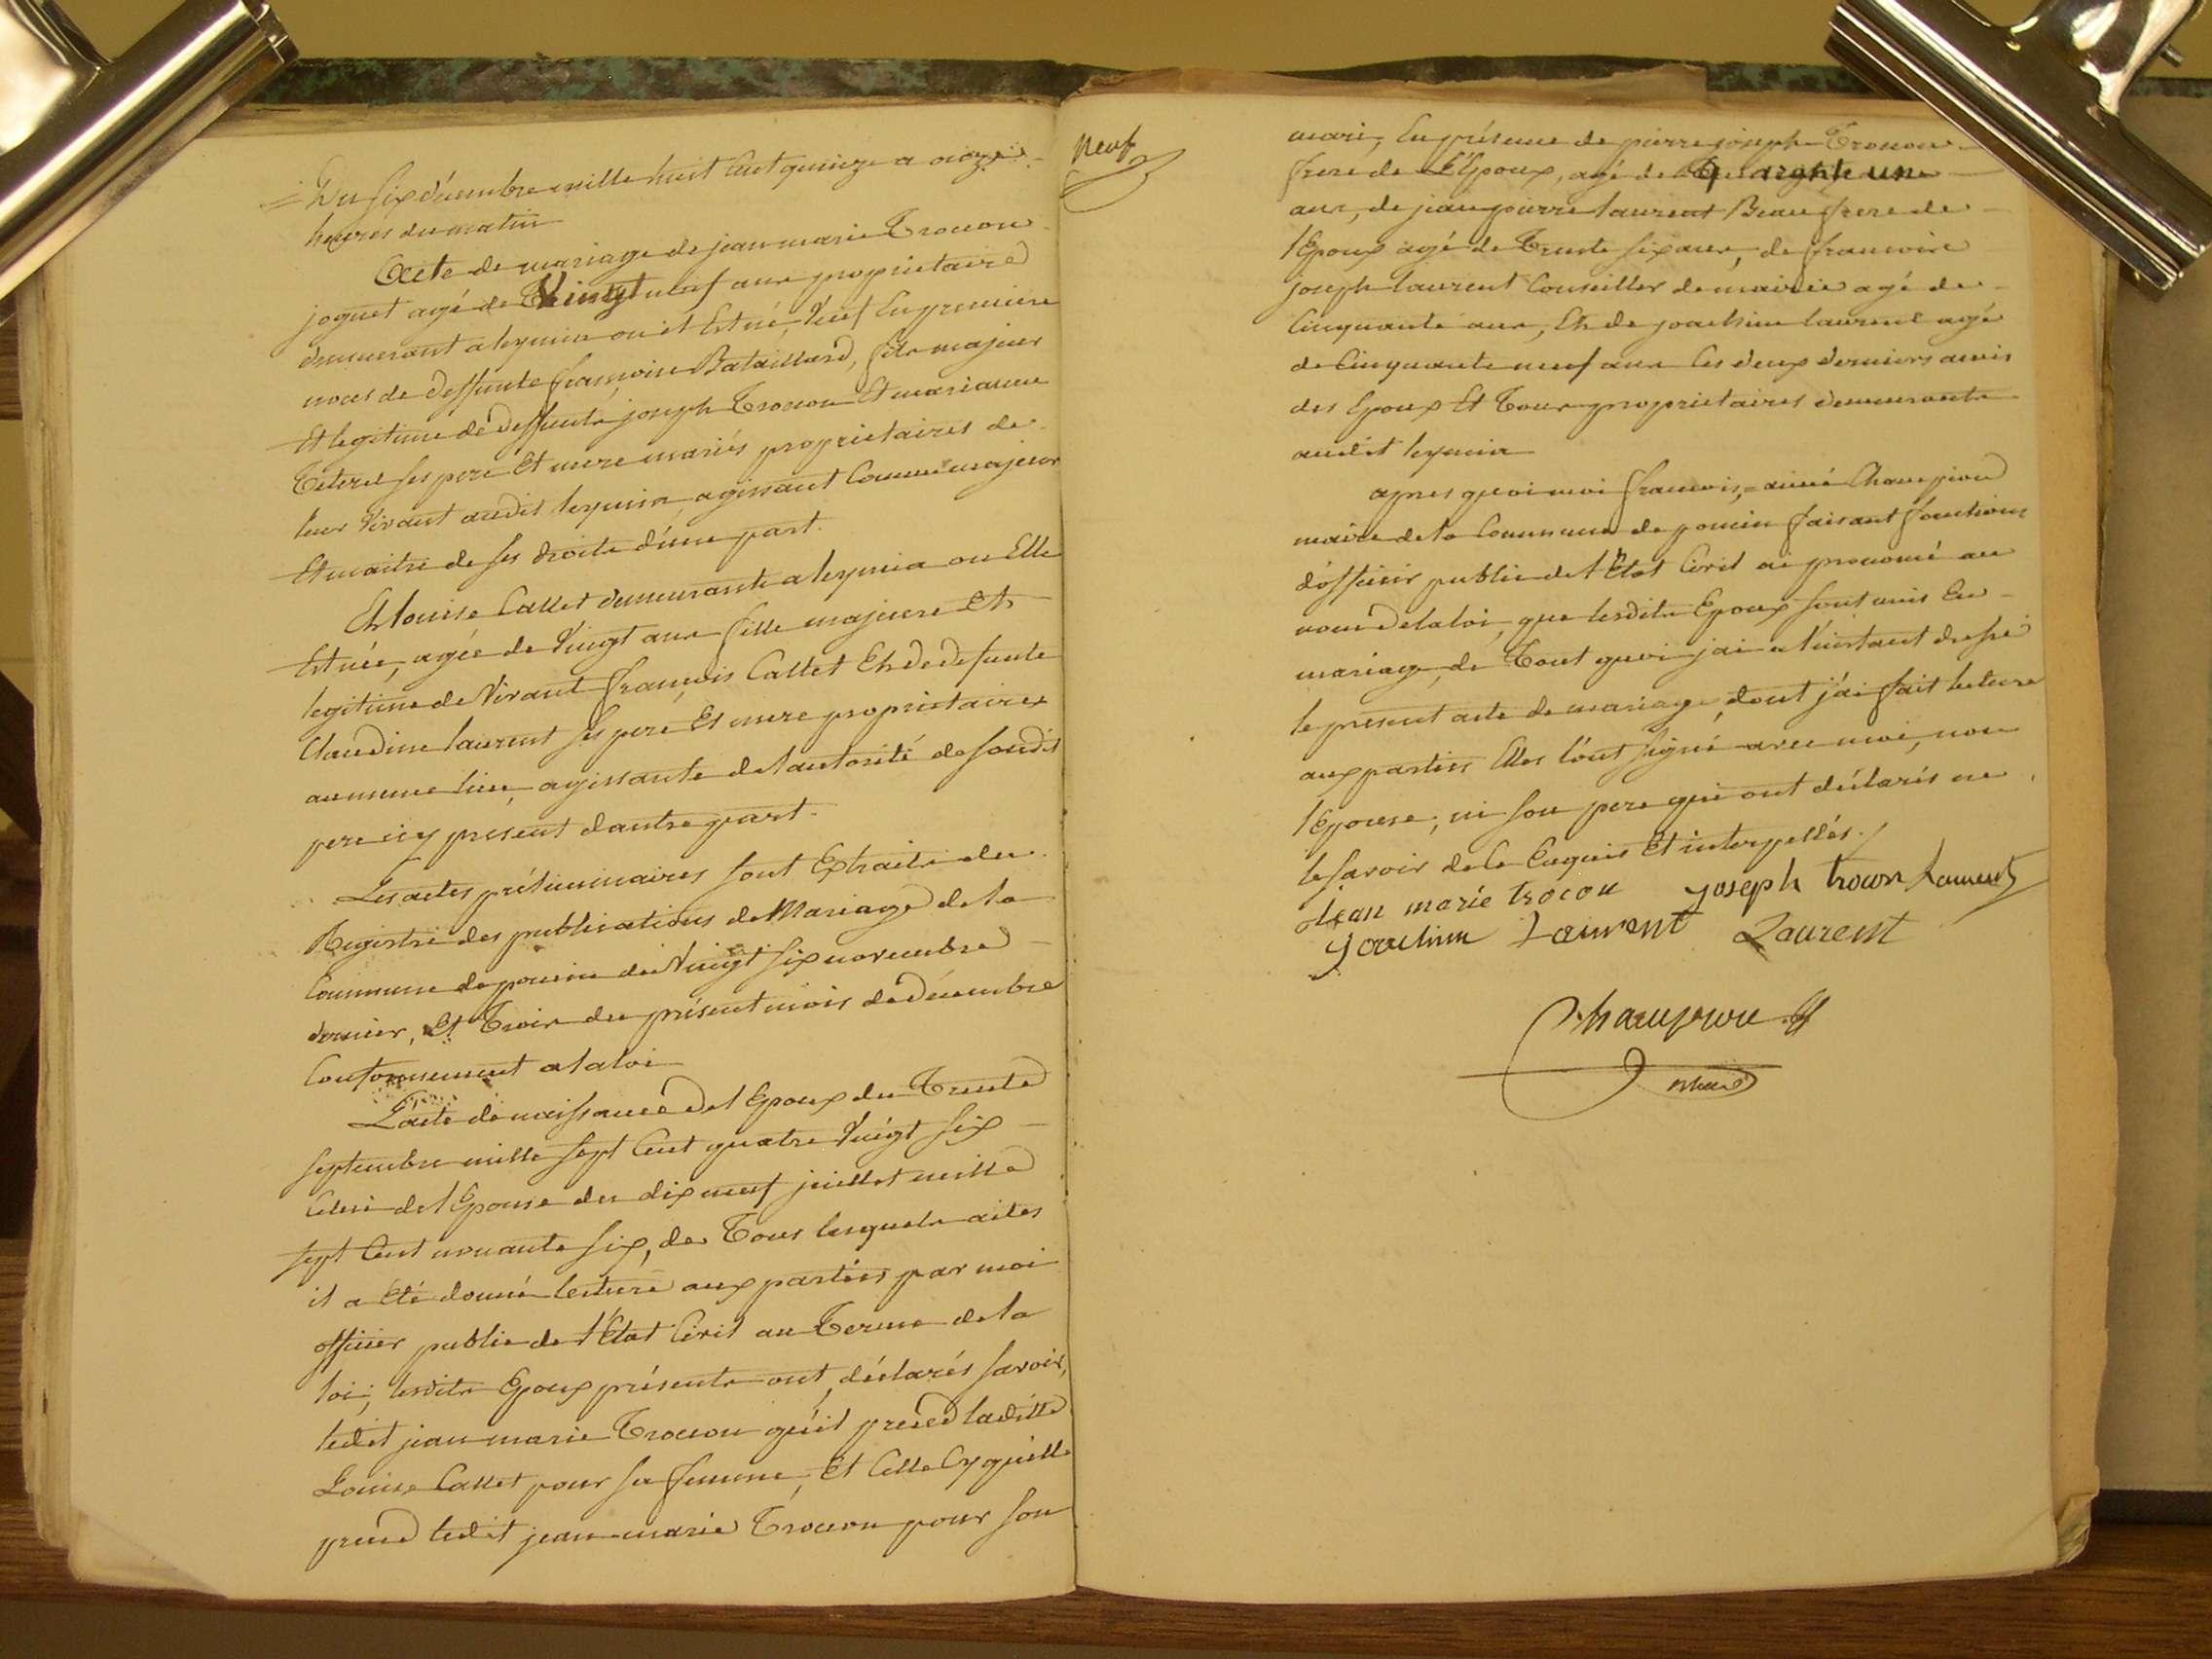 Du six décembre mille huit cent quinze a onze
heures du matin
Acte de mariage de jean marie Trocon
joguet agé de Vingt neuf ans proprietaire
demeurant a leymia ou il Est né, veuf En premiere
noces de deffunte françoise Bataillard, fils majeur
Et legitime de deffunts joseph Trocon Et marianne
ses pere Et mere mariés proprietaires de
leur vivant audit leymia, agissant Comme majeur
Et maitre de ses droits d'une part.
Et louise Callet demeurante a leymia ou Elle
Est née, agée de vingt ans fille majeure Et
legitime de vivant françois Callet Et de defunte
Claudine laurent ses pere Et mere proprietaires
au meme lieu, agissante de l'autorité de sondit
pere icy present d'autre part.
Les actes préliminaires sont Extraits du
Registre des publications de Mariage de la
Commune de poncin du vingt six novembre
dernier, Et Trois du présent mois de décembre
Conformement a la loi
L'acte de naissance de l'Epoux du Trente
septembre mille sept Cent quatre vingt six
Celui de l'Epouse du dix neuf juillet mille
sept Cent nonante six, de Tous lesquels actes
il a Eté donné lecture aux parties par moi
officier public de l'Etat Civil au Terme de la
loi; lesdits Epoux présents ont déclarés savoir,
ledit jean marie Trocon qu'il prend laditte
Louise Callet pour sa femme, Et Celle Cy qu'elle
prend ledit jean marie Trocon pour son
Neuf
mari, En présence de pierre joseph Trocon
frere de L'Epoux, agé de quarante une
ans, de jean pierre laurent Beau frere de
l'Epoux agé de Trente six ans, de francois
joseph laurent Conseiller de mairie agé de
Cinquante ans, Et de joachim laurent agé
de Cinquante neuf ans les deux derniers amis
des Epoux Et Tous proprietaires demeurants
audit leymia
apres quoi moi francois, aimé Champion
maire de la Commune de poncin faisant fonctions
d'officier public de l'Etat Civil ai prononcé au
nom de la loi, que lesdits Epoux sont unis En
mariage, de Tout quoi j'ai a l'instant dressé
le present acte de mariage, dont j'ai fait lecture
aux parties Elles l'ont signé avec moi, non
l'Epouse, ni son pere qui ont déclarés ne
le savoir de ce Enquis Et interpellés.
Jean marie trocon joseph trocon Laurent
Joachim Laurent Laurent
Champion
maire